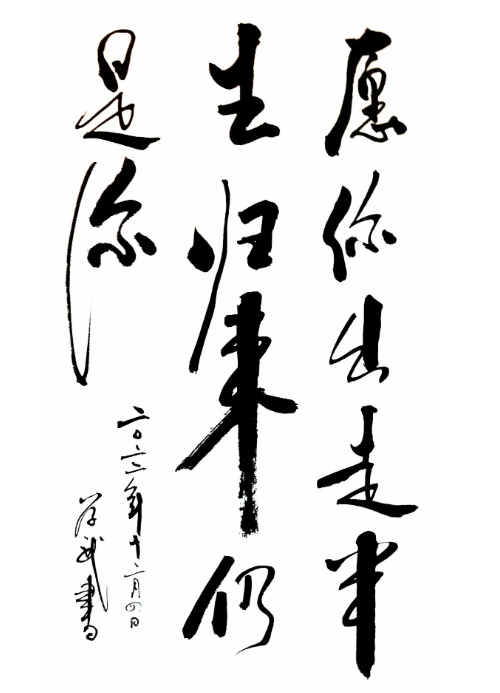 愿你出走半
生归来仍
是你
二〇二二年十二月四日
学武書